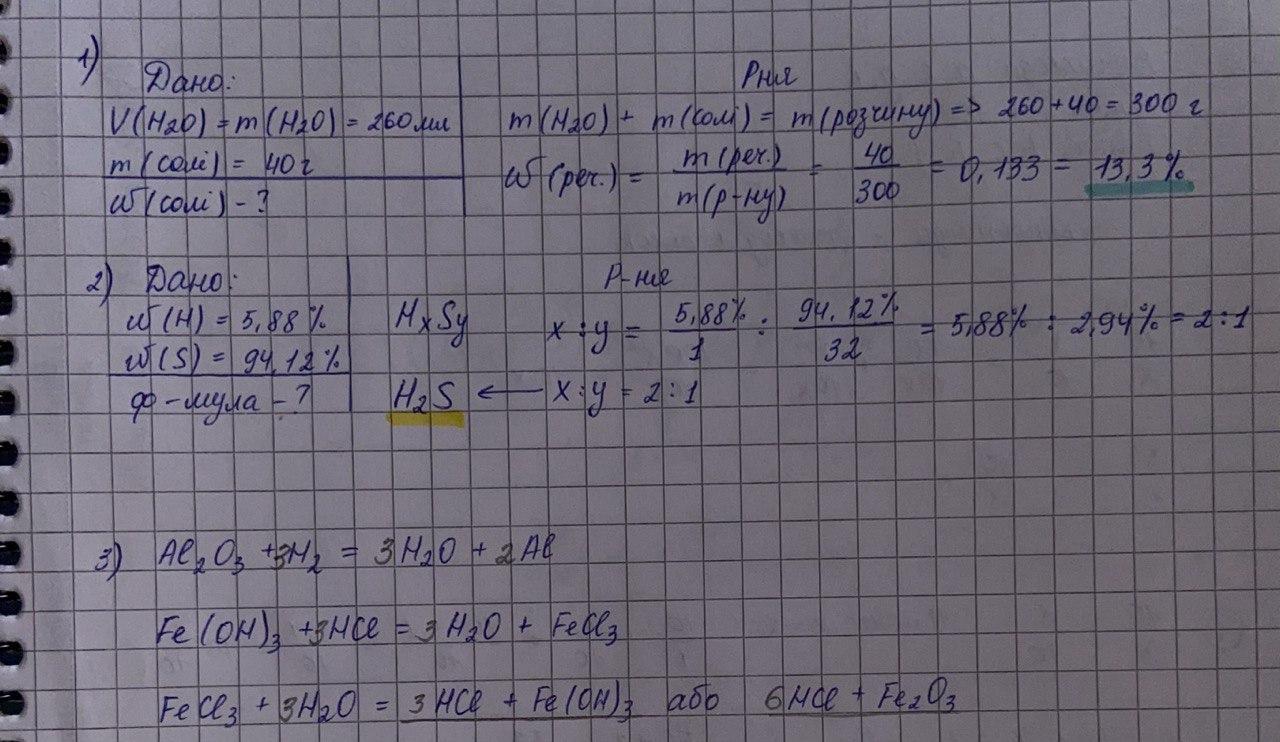 1) Дано:
V(H2O) = m(H2O) = 260 мл
m(солі) = 40 г
ω(солі) - ?
Р-ня
m(H2O) + m(солі) = m(розчину) => 260 + 40 = 300 г
ω(реч.) = m(реч.) / m(р-ну) = 40 / 300 = 0,133 = 13,3%
2) Дано:
ω(H) = 5,88%
ω(S) = 94,12%
ф-мула - ?
Р-ня
HxSy x : y = 5,88% / 1 : 94,12% / 32 = 5,88% : 2,94% = 2 : 1
H2S ← x : y = 2 : 1
3) Al2O3 + 3H2 = 3H2O + 2Al
Fe(OH)3 + 3HCl = 3H2O + FeCl3
FeCl3 + 3H2O = 3HCl + Fe(OH)3 або 6HCl + Fe2O3